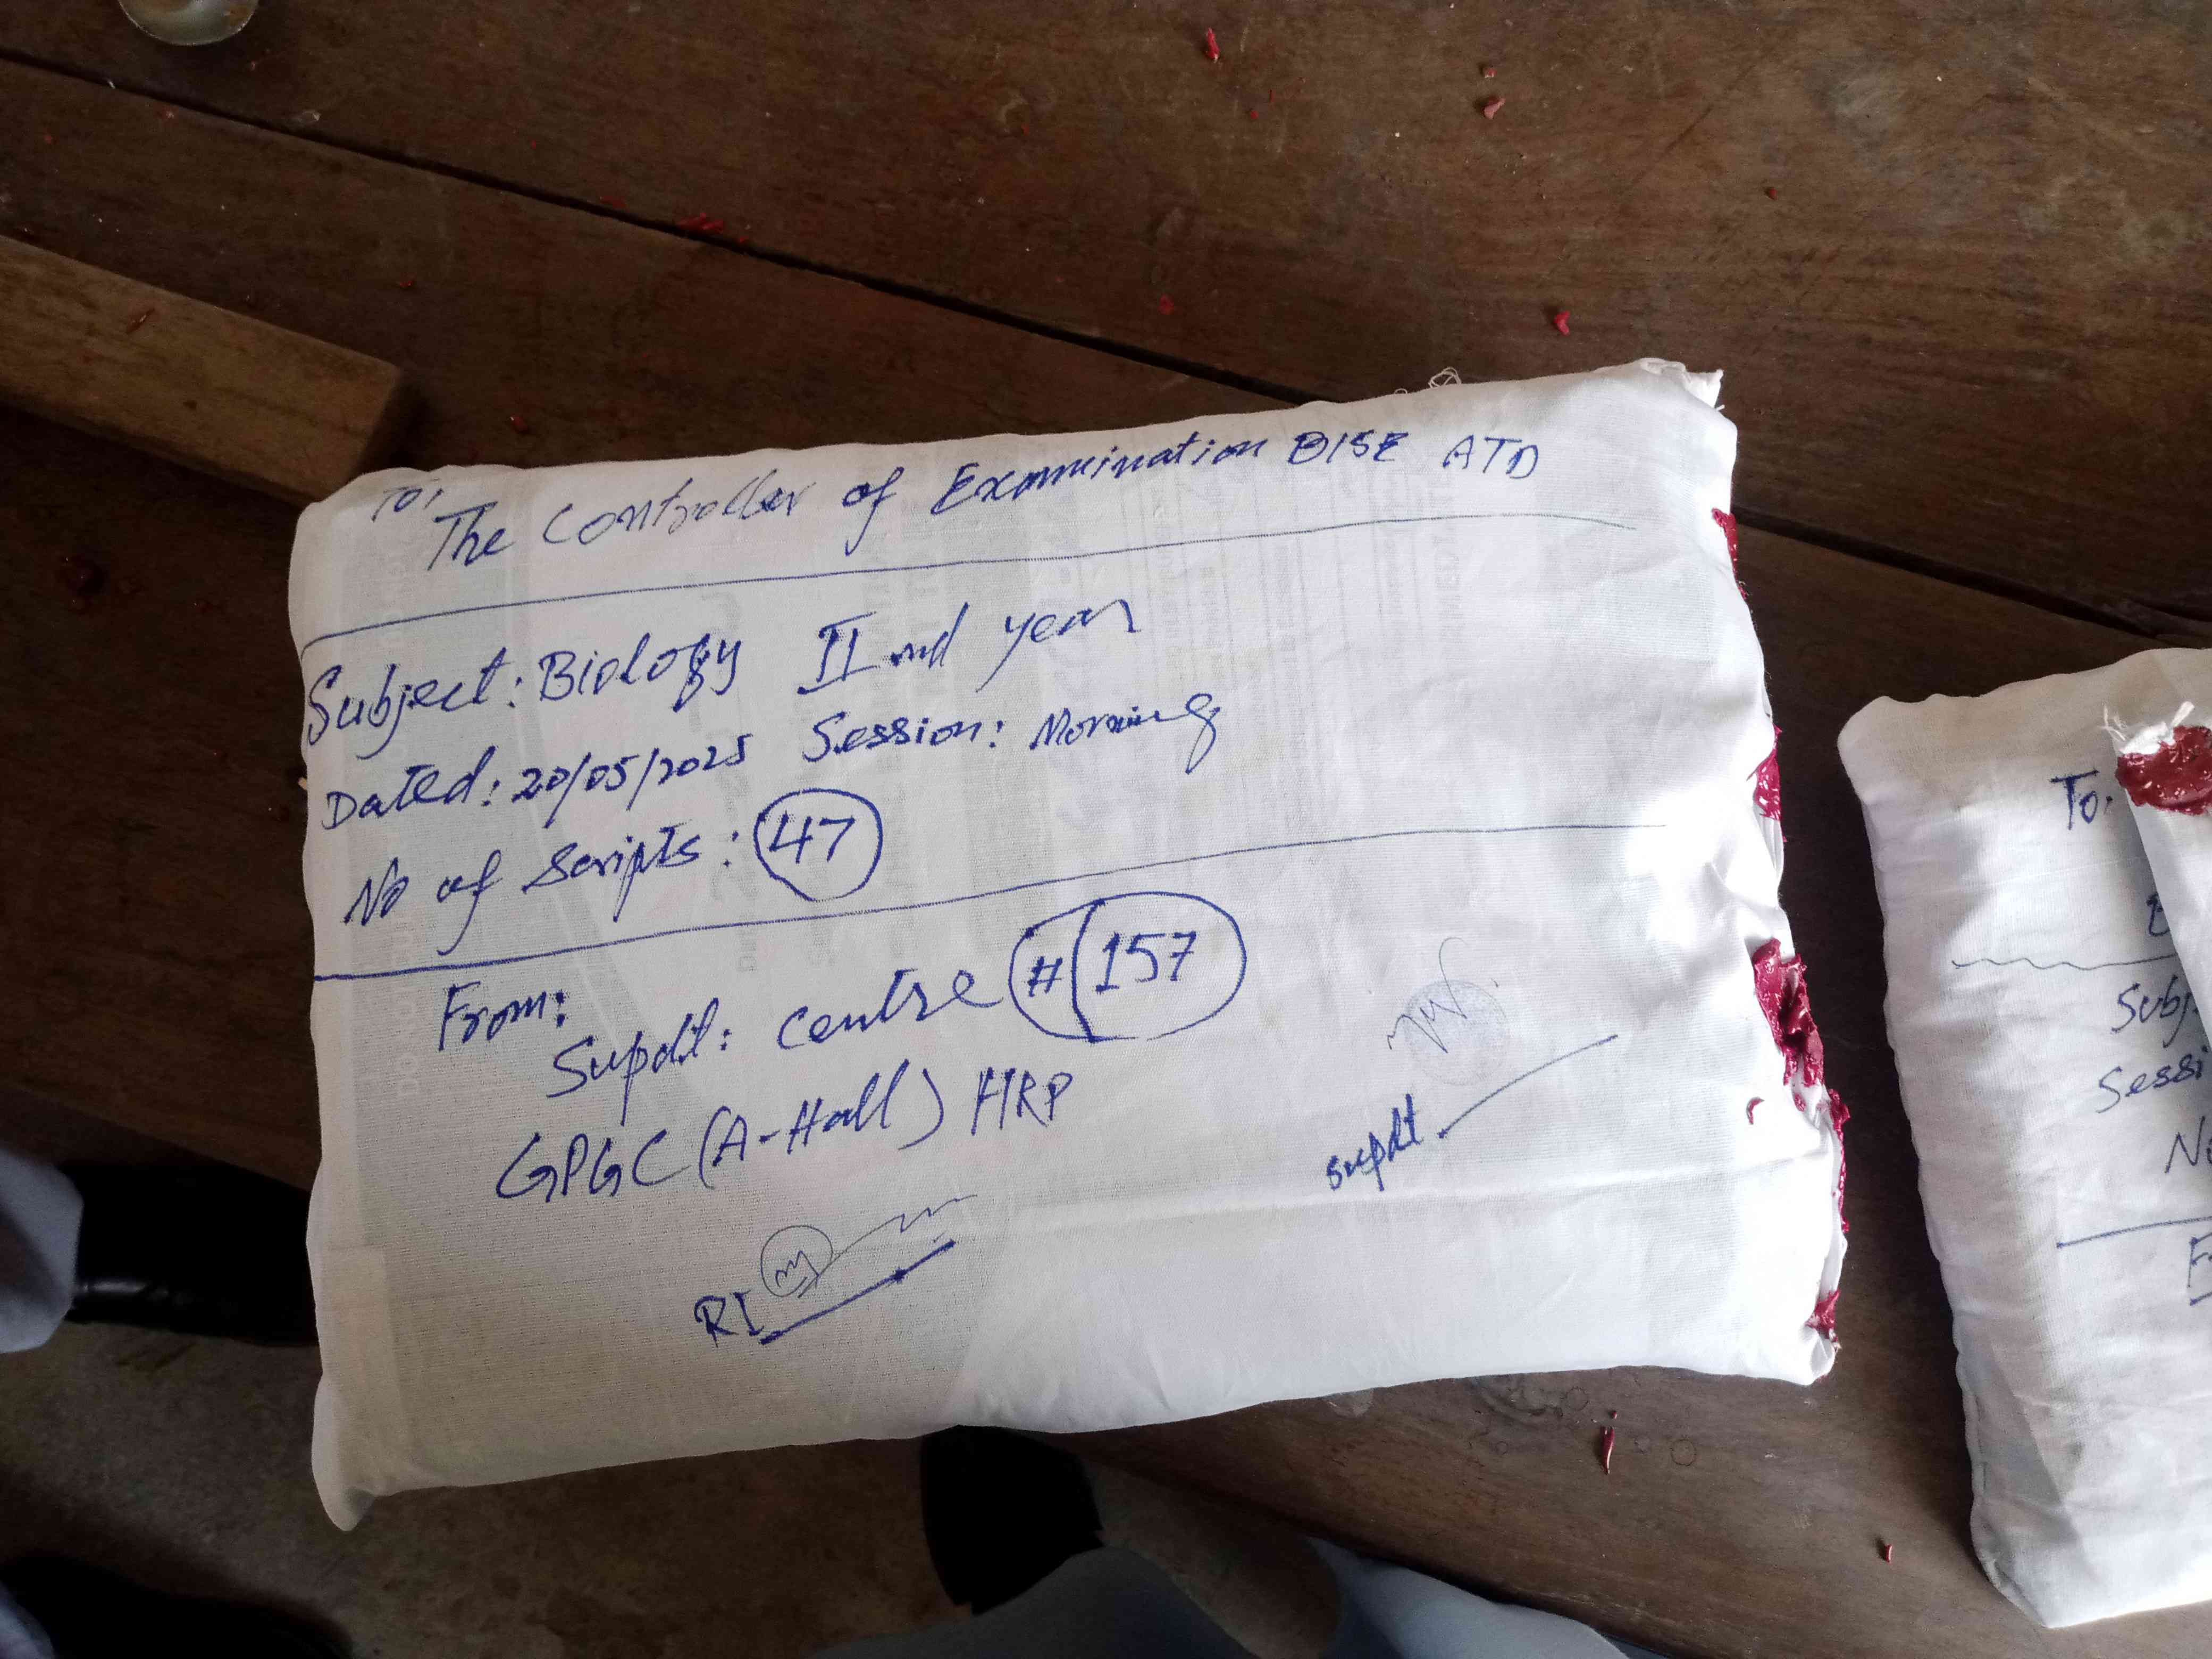 To,
The Controller of Examination BISE ATD
Subject: Biology II nd year
Dated: 20/05/2025 Session: Morning
No of Scripts: 47
From:
Supdt: Centre # 157
GPGC (A-Hall) HRP
RI
Supdt
To,
Subj
Sessi